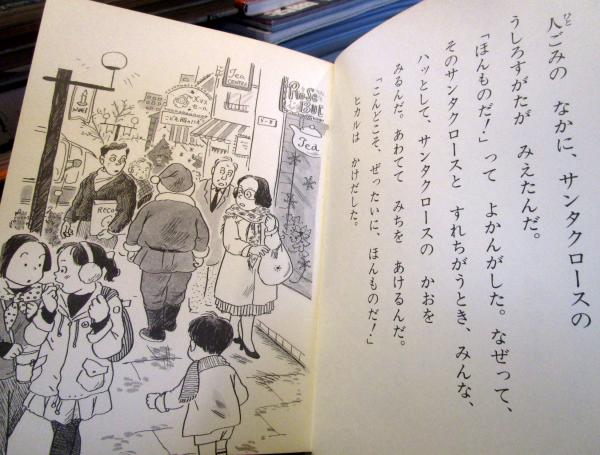 人ごみの なかに、サンタクロースの
うしろすがたが みえたんだ。
「ほんものだ！」って よかんがした。なぜって、
そのサンタクロースと すれちがうとき、みんな、
ハッとして、サンタクロースの かおを
みるんだ。あわてて みちを あけるんだ。
「こんどこそ、ぜったいに、ほんものだ！」
ヒカルは かけだした。
ひと
Tea
CENTER
Tea
Reco